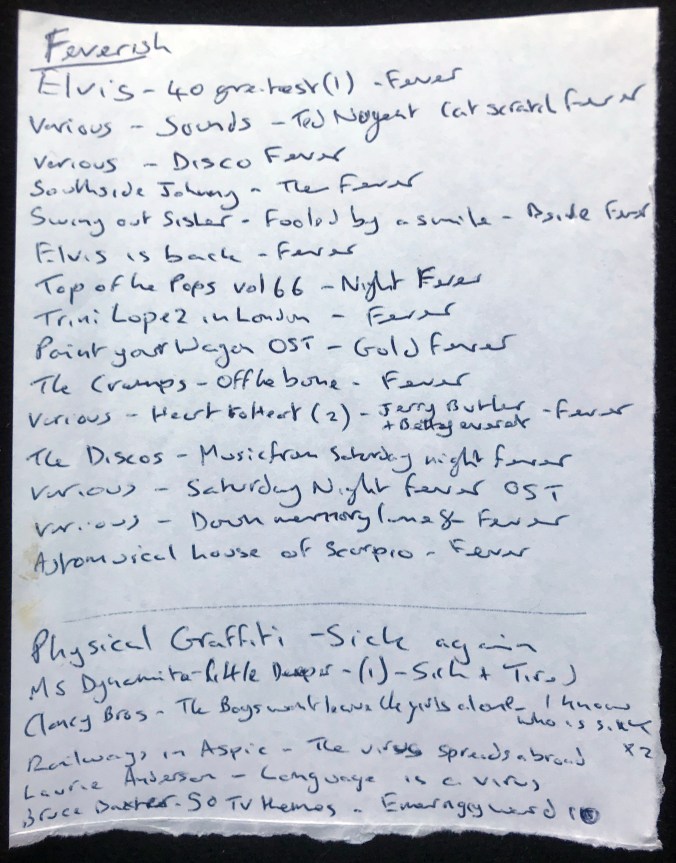 Feverish
Elvis - 40 greatest (1) - Fever
Various - Sounds - Ted Nugent Cat scratch fever
Various - Disco Fever
Southside Johnny - The Fever
Swing out Sister - Fooled by a smile - Bside Fever
Elvis is back - Fever
Top of the Pops vol 66 - Night Fever
Trini Lopez in London - Fever
Paint your Wagon OST - Gold fever
The Cramps - Off the bone - Fever
Various - Heart to Heart (2) - Jerry Butler + Betty everett - Fever
The Discos - Music from Saturday night fever
Various - Saturday Night fever OST
Various - Down memory lane 8 - Fever
Astromusical house of Scorpio - Fever
Physical Graffiti - Sick again
MS Dynamite - A little Deeper - (1) - Sick + Tired
Clancy Bros - The Boys wont leave the girls alone - I know who is sick x 2
Railways in Aspic - The virus spreads abroad
Laurie Anderson - Language is a virus
Bruce Baxter - 50 TV themes - Emergency ward 10